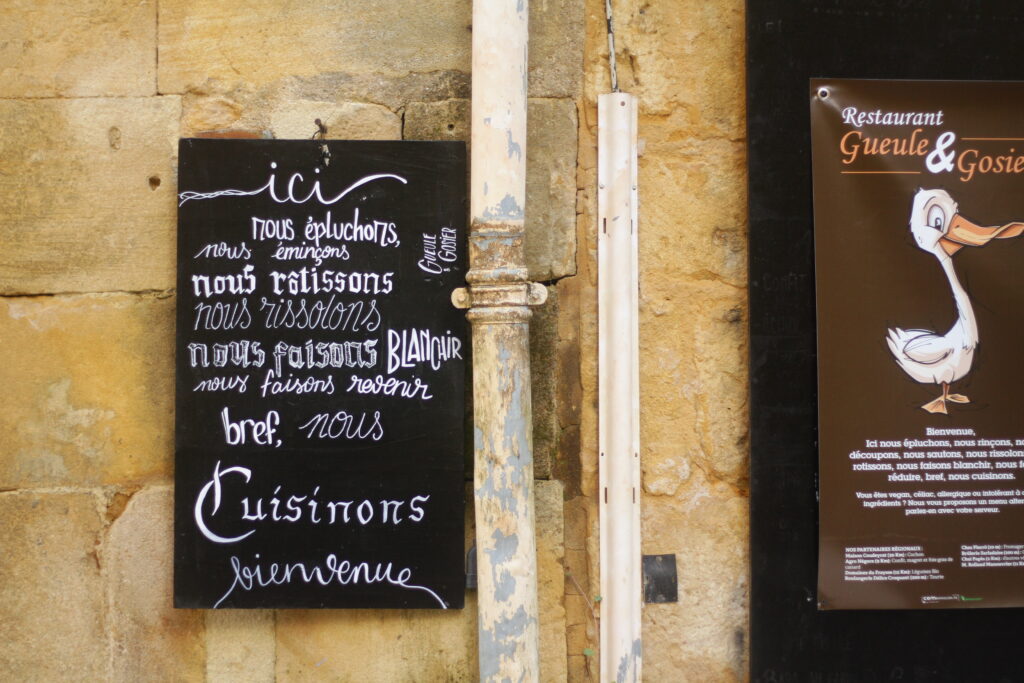 ici
nous épluchons,
nous éminçons
nous rôtissons
nous rissolons
nous faisons BLANCHIR
nous faisons revenir
bref, nous
Cuisinons
bienvenue
GUEULE
&
GOSIER
Restaurant
Gueule & Gosie
Bienvenue,
Ici nous épluchons, nous rinçons, no
découpons, nous sautons, nous rissolons
rotissons, nous faisons blanchir, nous f
réduire, bref, nous cuisinons.
Vous êtes vegan, céliac, allergique ou intolérant à
ingrédients ? Nous vous proposons un menu alter
parlez-en avec votre serveur.
NOS PARTENAIRES RÉGIONAUX :
Maison Goudeynat (20 Km) : Cochon